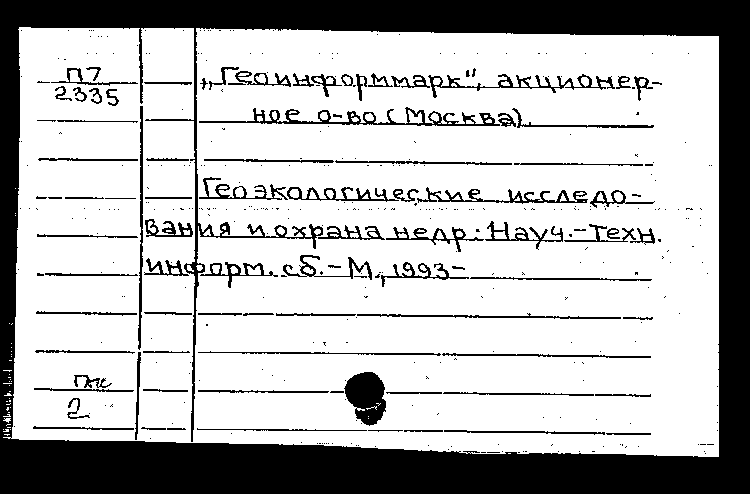 П7
2335
„Геоинформмарк", акционер-
ное о-во (Москва).
Геоэкологические исследо-
вания и охрана недр: Науч.-техн.
информ. сб. - М., 1993-
2